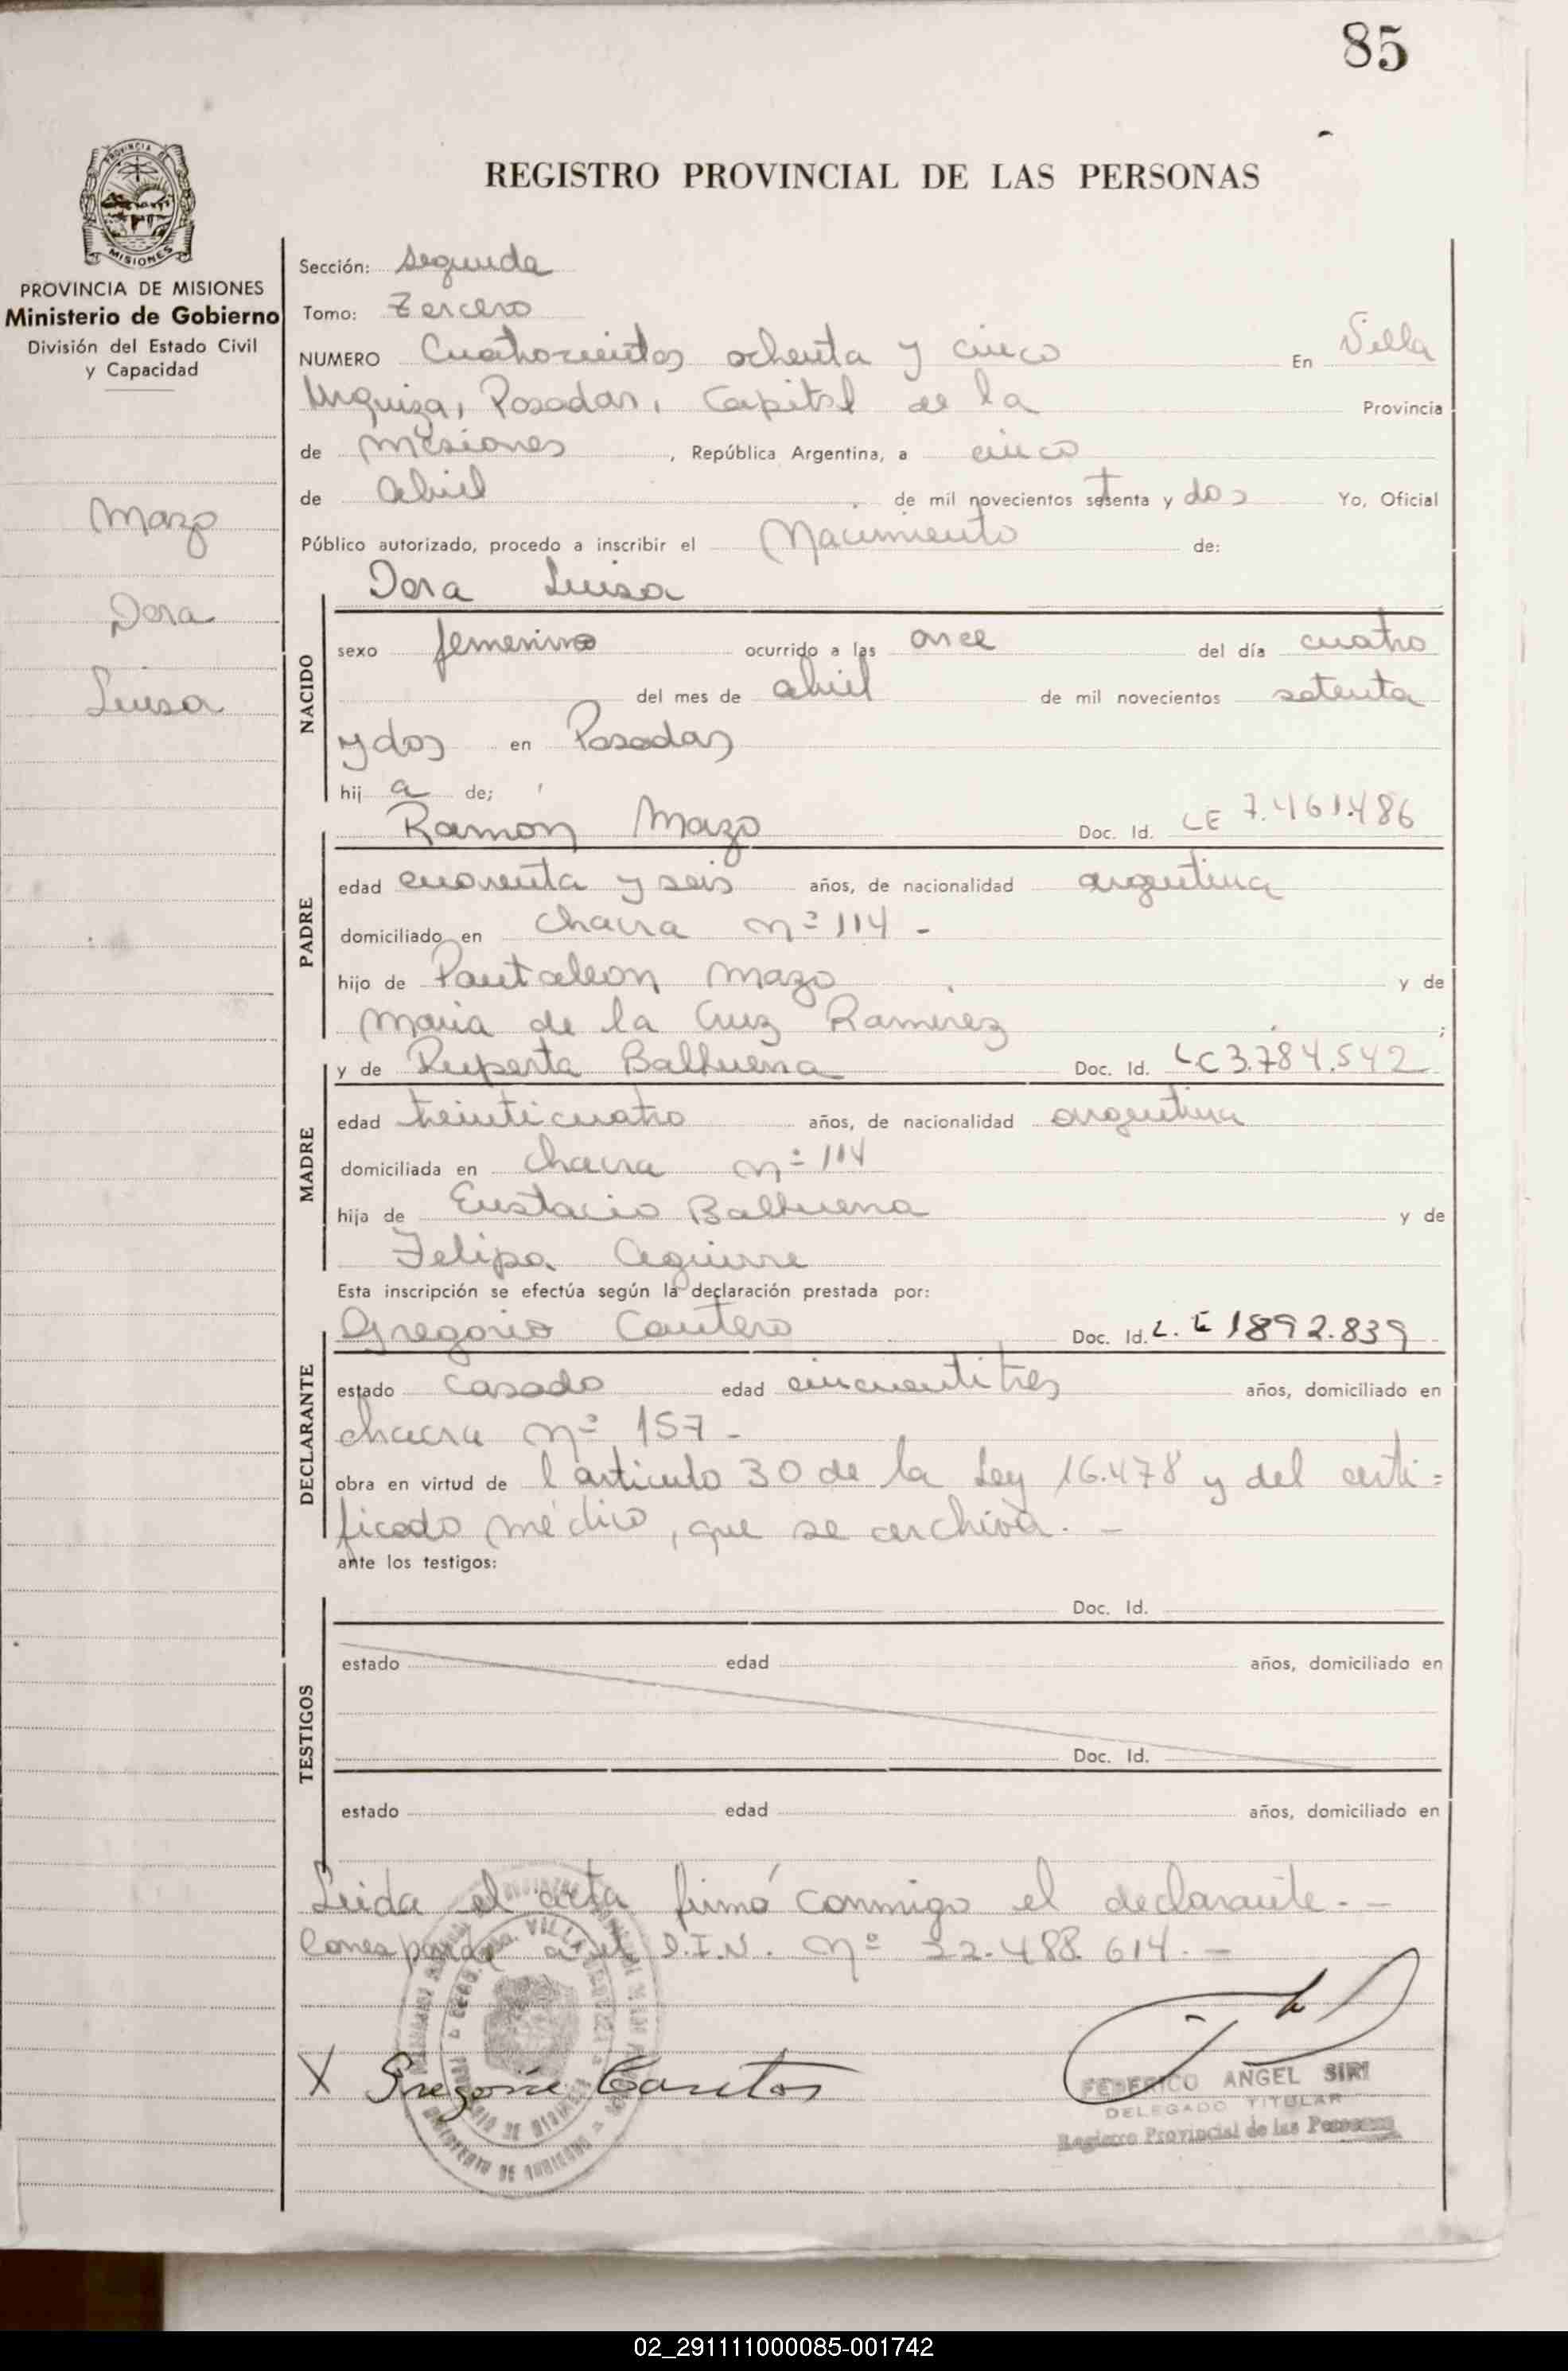 85
REGISTRO PROVINCIAL DE LAS PERSONAS
PROVINCIA DE MISIONES
Ministerio de Gobierno
División del Estado Civil
y Capacidad
Mazo
Dora
Luisa
Sección: Segunda
Tomo: Tercero
NUMERO Cuatrocientos ochenta y cinco En Villa
Urquiza, Posadas, Capital de la Provincia
de Misiones, República Argentina, a cinco
de abril de mil novecientos setenta y dos Yo, Oficial
Público autorizado, procedo a inscribir el Nacimiento de:
Dora Luisa
NACIDO
sexo femenino ocurrido a las once del día cuatro
del mes de abril de mil novecientos setenta
y dos en Posadas
hij a de;
Ramon Mazo Doc. Id. LE 7.461.486
PADRE
edad cuarenta y seis años, de nacionalidad argentina
domiciliado en chacra nº 114 -
hijo de Pantaleon Mazo y de
Maria de la Cruz Ramirez ;
y de Ruperta Balbuena Doc. Id. LC 3.784.542
MADRE
edad treinticuatro años, de nacionalidad argentina
domiciliada en chacra nº 114
hija de Eustacio Balbuena y de
Felipa Aguirre
Esta inscripción se efectúa según la declaración prestada por:
Gregorio Cantero Doc. Id. L. E 1892.839
DECLARANTE
estado casado edad cincuentitres años, domiciliado en
chacra nº 157 -
obra en virtud de l articulo 30 de la Ley 16.478 y del certi=
ficado médico, que se archiva. -
ante los testigos:
TESTIGOS
Doc. Id.
estado edad años, domiciliado en
Doc. Id.
estado edad años, domiciliado en
Leida el acta firmó conmigo el declarante. -
Corresponde a el D.I.N. Nº 22.488.614. -
X Gregorio
FEDERICO ANGEL SIRI
DELEGADO TITULAR
Registro Provincial de las Personas
02_291111000085-001742